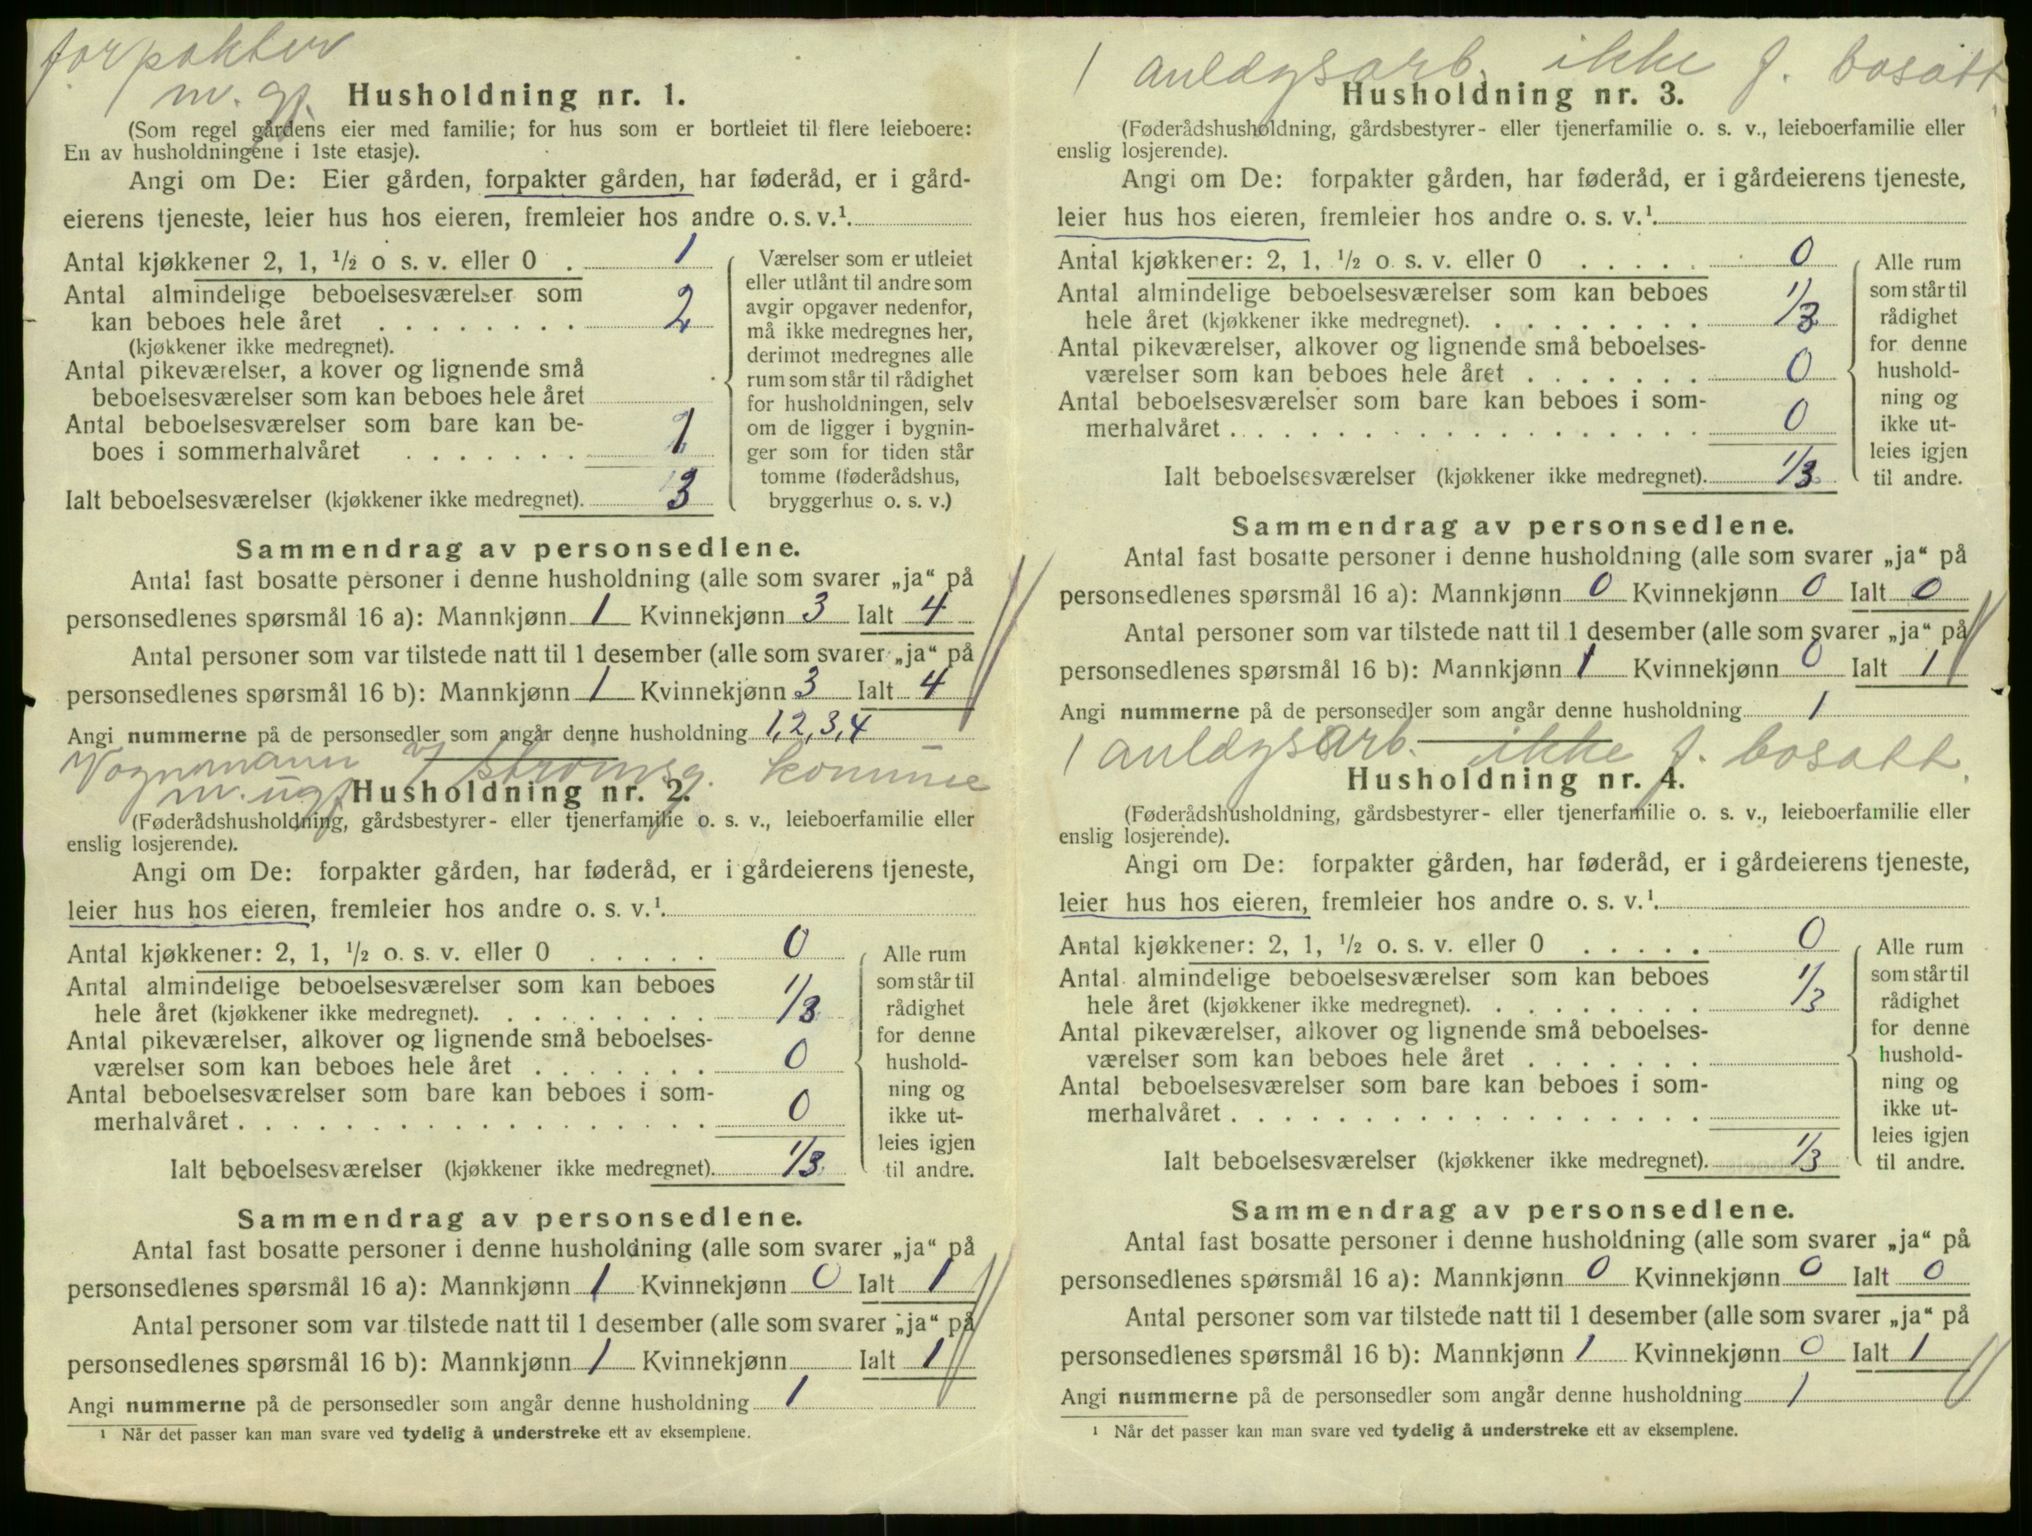 forpakter
m. gf.
Husholdning nr. 1.
(Som regel gårdens eier med familie; for hus som er bortleiet til flere leieboere:
En av husholdningene i 1ste etasje).
Angi om De: Eier gården, forpakter gården, har føderåd, er i gård-
eierens tjeneste, leier hus hos eieren, fremleier hos andre o. s. v.¹
Antal kjøkkener 2, 1, ½ o s. v. eller 0 . 1
Antal almindelige beboelsesværelser som
kan beboes hele året . . . . . . . . 2
(kjøkkener ikke medregnet).
Antal pikeværelser, a kover og lignende små
beboelsesværelser som kan beboes hele året
Antal beboelsesværelser som bare kan be-
boes i sommerhalvåret . . . . . . . 1
Ialt beboelsesværelser (kjøkkener ikke medregnet). 3
Værelser som er utleiet
eller utlånt til andre som
avgir opgaver nedenfor,
må ikke medregnes her,
derimot medregnes alle
rum som står til rådighet
for husholdningen, selv
om de ligger i bygnin-
ger som for tiden står
tomme (føderådshus,
bryggerhus o. s. v.)
Sammendrag av personsedlene.
Antal fast bosatte personer i denne husholdning (alle som svarer „ja“ på
personsedlenes spørsmål 16 a): Mannkjønn 1 Kvinnekjønn 3 Ialt 4
Antal personer som var tilstede natt til 1 desember (alle som svarer „ja“ på
personsedlenes spørsmål 16 b): Mannkjønn 1 Kvinnekjønn 3 Ialt 4
Angi nummerne på de personsedler som angår denne husholdning 1,2,3,4
Vognmann v/ Strømsg. kommune
m. ugf.
Husholdning nr. 2.
(Føderådshusholdning, gårdsbestyrer- eller tjenerfamilie o. s. v., leieboerfamilie eller
enslig losjerende).
Angi om De: forpakter gården, har føderåd, er i gårdeierens tjeneste,
leier hus hos eieren, fremleier hos andre o. s. v.¹
Antal kjøkkener: 2, 1, ½ o. s. v. eller 0 . . . . . 0
Antal almindelige beboelsesværelser som kan beboes
hele året (kjøkkener ikke medregnet). . . . . . . . . 1/3
Antal pikeværelser, alkover og lignende små beboelses-
værelser som kan beboes hele året . . . . . . . 0
Antal beboelsesværelser som bare kan beboes i som-
merhalvåret . . . . . . . . . . . . . . . . . . 0
Ialt beboelsesværelser (kjøkkener ikke medregnet). 1/3
Alle rum
som står til
rådighet
for denne
hushold-
ning og
ikke ut-
leies igjen
til andre.
Sammendrag av personsedlene.
Antal fast bosatte personer i denne husholdning (alle som svarer „ja“ på
personsedlenes spørsmål 16 a): Mannkjønn 1 Kvinnekjønn 0 Ialt 1
Antal personer som var tilstede natt til 1 desember (alle som svarer „ja“ på
personsedlenes spørsmål 16 b): Mannkjønn 1 Kvinnekjønn Ialt 1
Angi nummerne på de personsedler som angår denne husholdning 1
¹ Når det passer kan man svare ved tydelig å understreke ett av eksemplene.
1 anlægsarb. ikke f. bosatt
Husholdning nr. 3.
(Føderådshusholdning, gårdsbestyrer- eller tjenerfamilie o. s. v., leieboerfamilie eller
enslig losjerende).
Angi om De: forpakter gården, har føderåd, er i gårdeierens tjeneste,
leier hus hos eieren, fremleier hos andre o. s. v.¹
Antal kjøkkener: 2, 1, ½ o. s. v. eller 0 . . . . . 0
Antal almindelige beboelsesværelser som kan beboes
hele året (kjøkkener ikke medregnet). . . . . . . . . 1/3
Antal pikeværelser, alkover og lignende små beboelses-
værelser som kan beboes hele året . . . . . . . 0
Antal beboelsesværelser som bare kan beboes i som-
merhalvåret . . . . . . . . . . . . . . . . . . 0
Ialt beboelsesværelser (kjøkkener ikke medregnet). 1/3
Alle rum
som står til
rådighet
for denne
hushold-
ning og
ikke ut-
leies igjen
til andre.
Sammendrag av personsedlene.
Antal fast bosatte personer i denne husholdning (alle som svarer „ja“ på
personsedlenes spørsmål 16 a): Mannkjønn 0 Kvinnekjønn 0 Ialt 0
Antal personer som var tilstede natt til 1 desember (alle som svarer „ja“ på
personsedlenes spørsmål 16 b): Mannkjønn 1 Kvinnekjønn 0 Ialt 1
Angi nummerne på de personsedler som angår denne husholdning 1
1 anlægsarb. ikke f. bosatt.
Husholdning nr. 4.
(Føderådshusholdning, gårdsbestyrer- eller tjenerfamilie o. s. v., leieboerfamilie eller
enslig losjerende).
Angi om De: forpakter gården, har føderåd, er i gårdeierens tjeneste,
leier hus hos eieren, fremleier hos andre o. s. v.¹
Antal kjøkkener: 2, 1, ½ o. s. v. eller 0 . . . . . 0
Antal almindelige beboelsesværelser som kan beboes
hele året (kjøkkener ikke medregnet). . . . . . . . . 1/3
Antal pikeværelser, alkover og lignende små beboelses-
værelser som kan beboes hele året . . . . . . .
Antal beboelsesværelser som bare kan beboes i som-
merhalvåret . . . . . . . . . . . . . . . . . .
Ialt beboelsesværelser (kjøkkener ikke medregnet). 1/3
Alle rum
som står til
rådighet
for denne
hushold-
ning og
ikke ut-
leies igjen
til andre.
Sammendrag av personsedlene.
Antal fast bosatte personer i denne husholdning (alle som svarer „ja“ på
personsedlenes spørsmål 16 a): Mannkjønn 0 Kvinnekjønn 0 Ialt 0
Antal personer som var tilstede natt til 1 desember (alle som svarer „ja“ på
personsedlenes spørsmål 16 b): Mannkjønn 1 Kvinnekjønn 0 Ialt 1
Angi nummerne på de personsedler som angår denne husholdning 1
¹ Når det passer kan man svare ved tydelig å understreke ett av eksemplene.